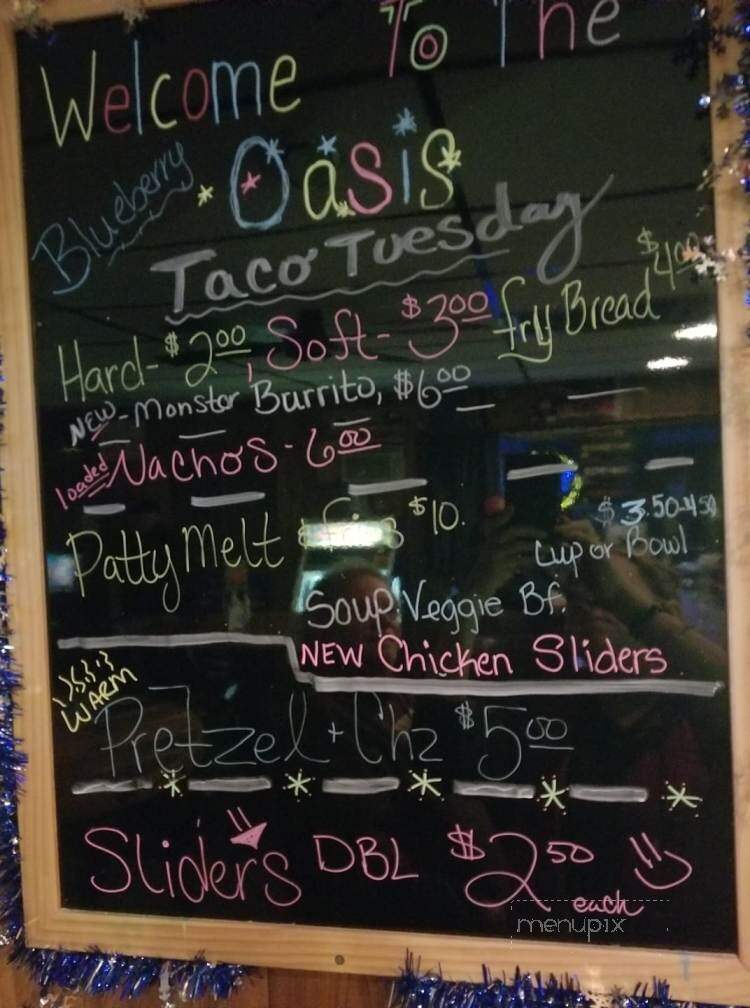 Welcome To The
Blueberry
Oasis
Taco Tuesday
Hard- $2.00, Soft- $3.00 fry Bread $4.00
NEW - Monster Burrito, $6.00
loaded Nachos - 6.00
Patty Melt & fries $10.
$3.50-4.50
Cup or Bowl
Soup! Veggie Bf.
NEW Chicken Sliders
WARM
Pretzel + Chz $5.00
Sliders DBL $2.50
each
menupix